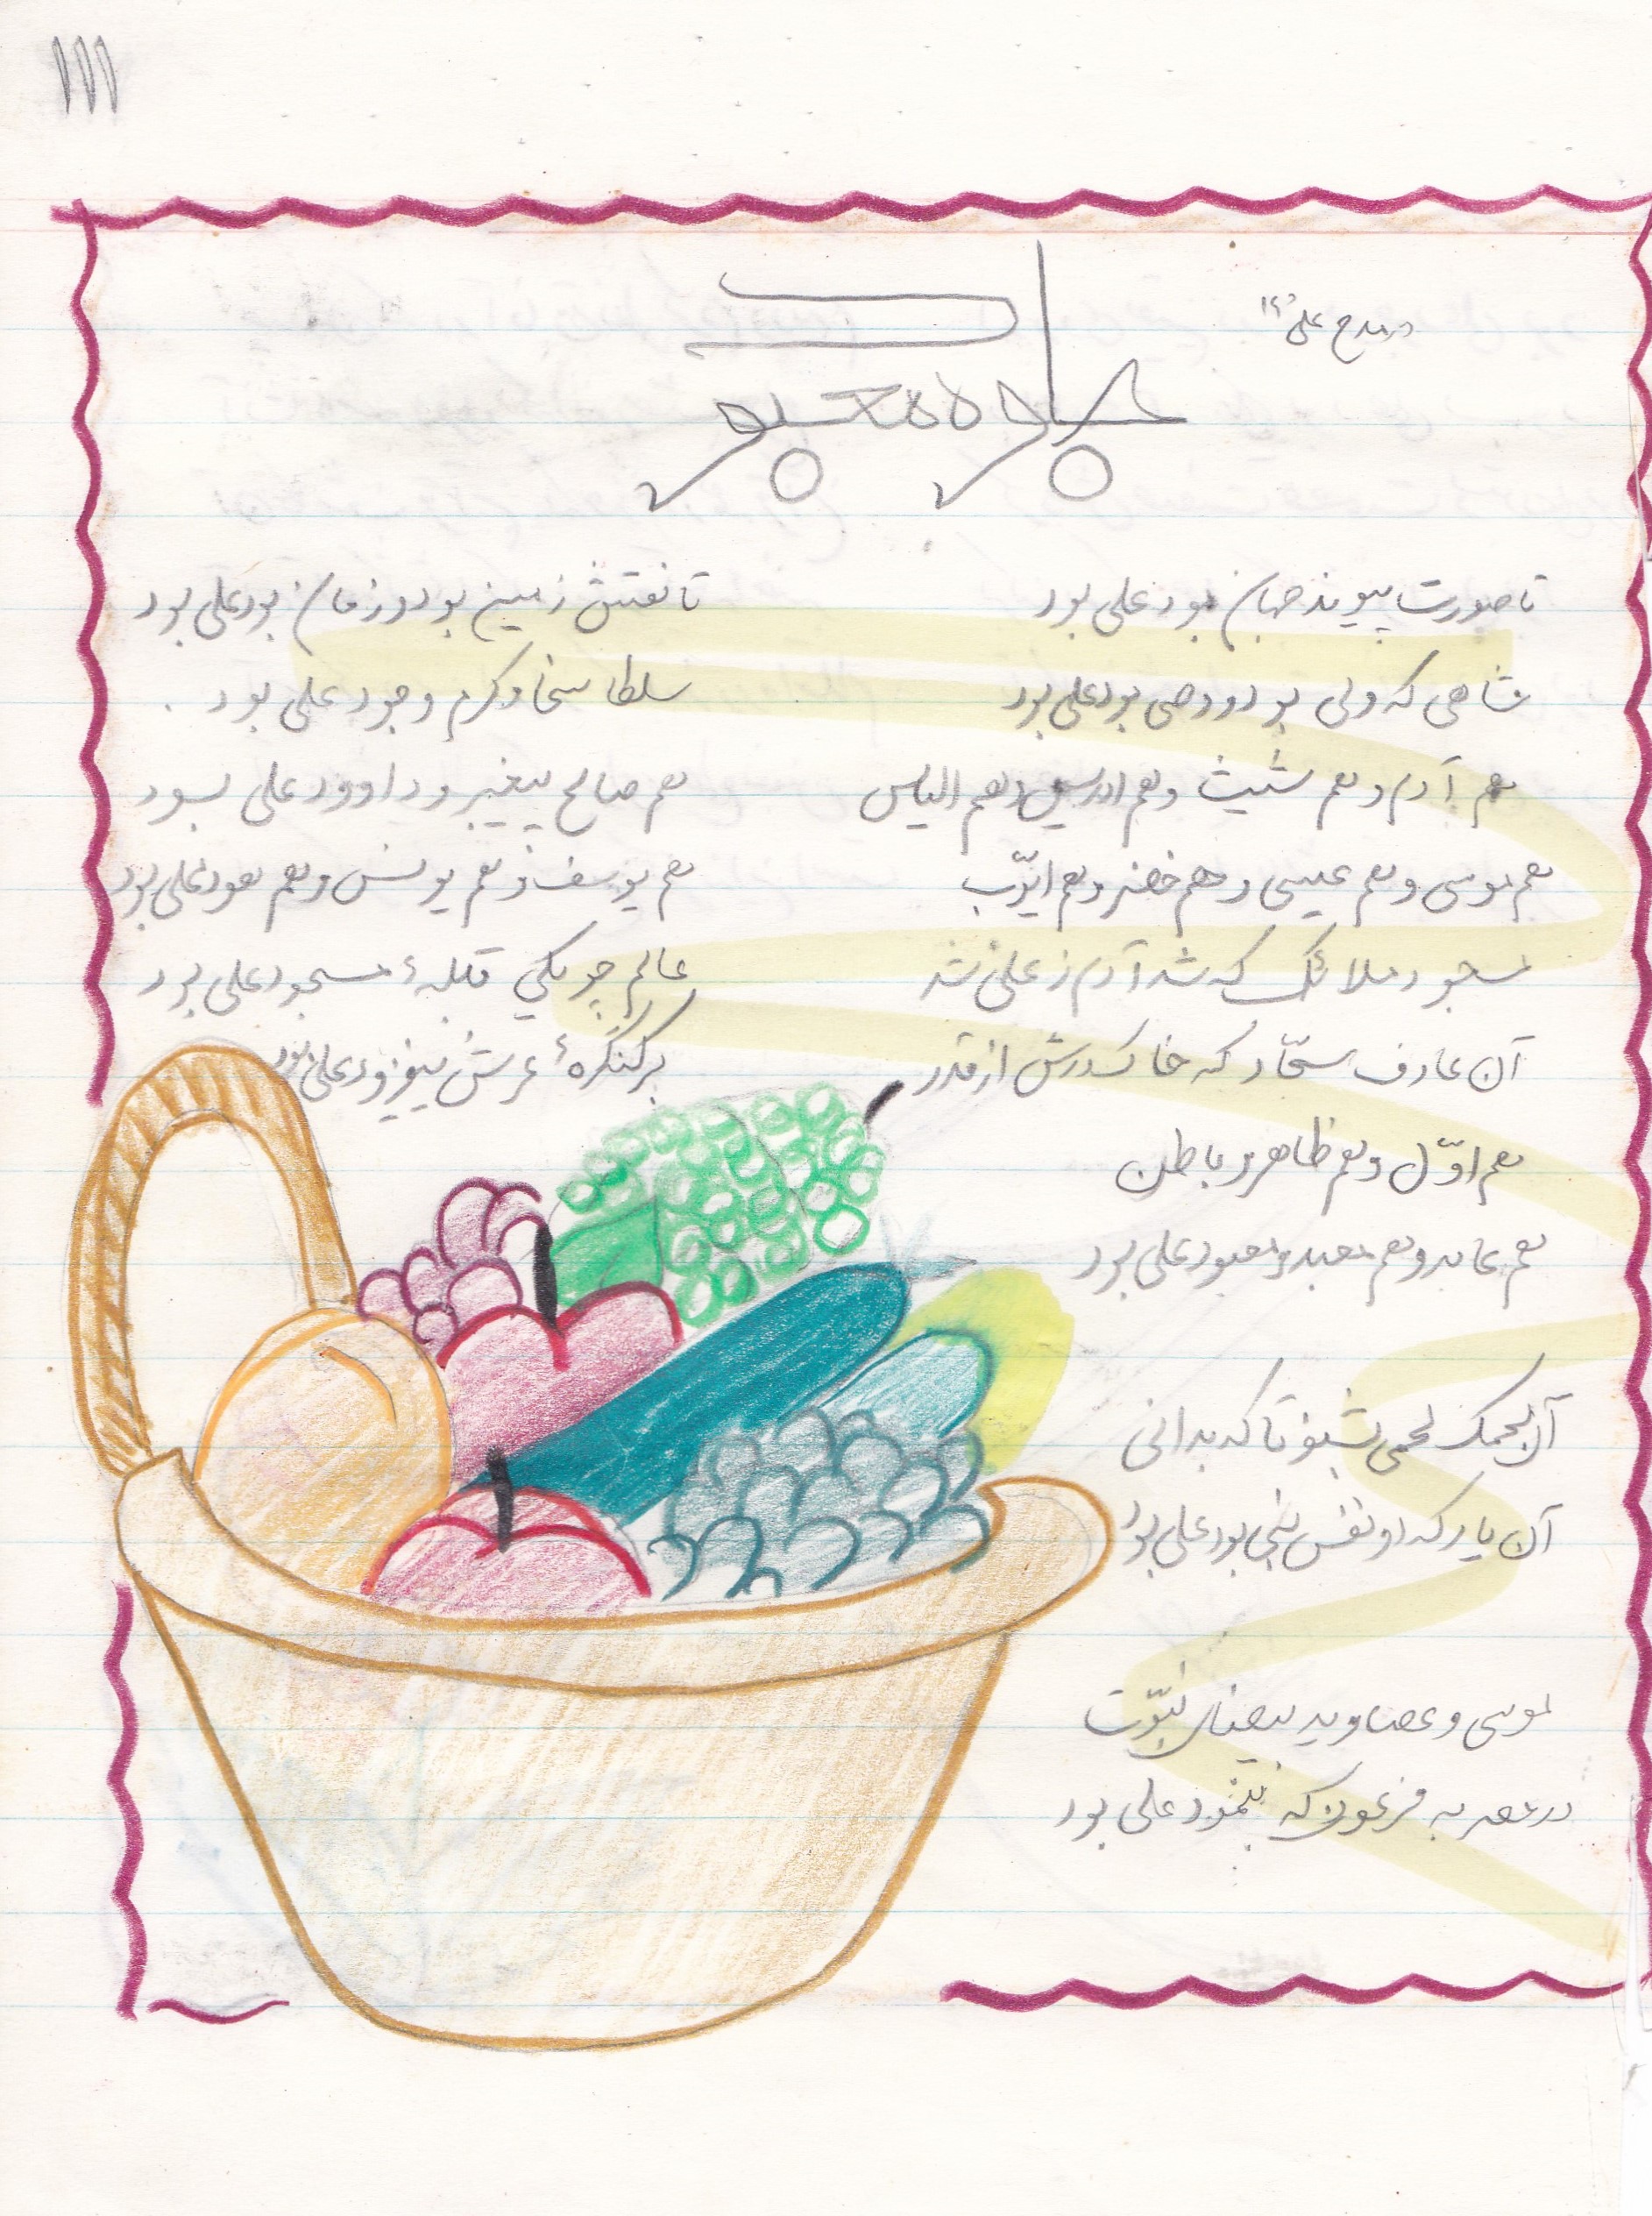 111
در مدح علی ع
جلوه معبود
تا صورت پیوند جهان بود علی بود
تا نقش زمین بود و زمان بود علی بود
شاهی که ولی بود و وصی بود علی بود
سلطا سخا و کرم و جود علی بود
هم آدم و هم شیث و هم ادریس و هم الیاس
هم صالح پیغمبر و داوود علی بود
هم موسی و هم عیسی و هم خضر و هم ایّوب
هم یوسف و هم یونس و هم هود علی بود
مسجود ملائک که شد آدم ز علی شد
عالم چو یکی قبلهٔ مسجود علی بود
آن عارف سجّاد که خاک درش از قدر
بر کنگرهٔ عرش بیفزود علی بود
هم اوّل و هم ظاهر و باطن
هم عابد و هم معبد و معبود علی بود
آن لحمک لحمی بشنو تا که بدانی
آن یار که او نفس نبی بود علی بود
موسی و عصا و ید بیضا نبوّت
در مصر به فرعون که بنمود علی بود